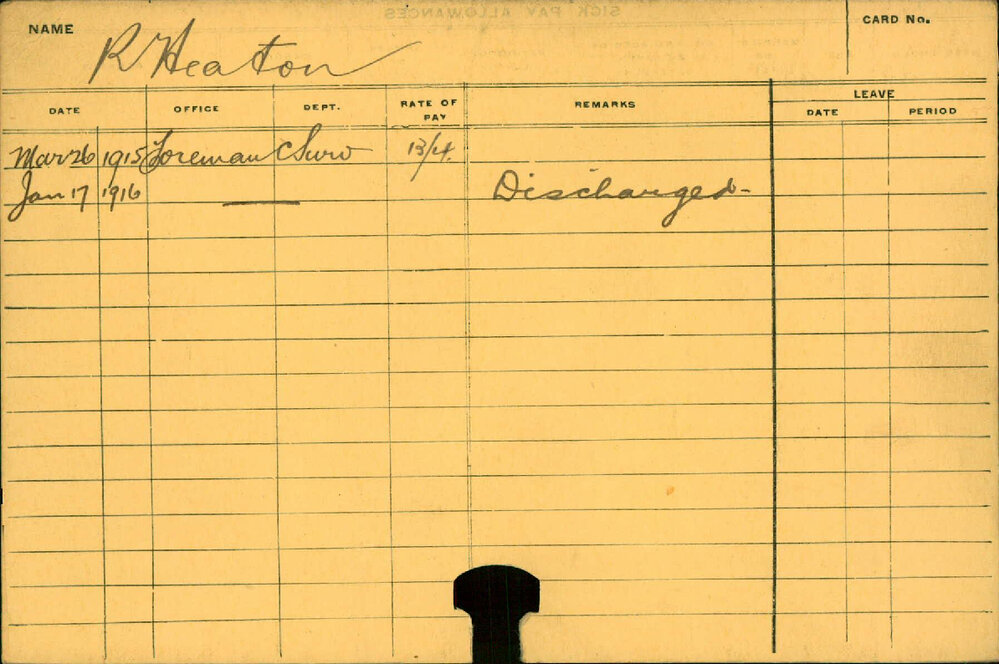 SICK PAY ALLOWANCES
NAME R Heaton CARD No.
DATE OFFICE DEPT. RATE OF PAY REMARKS LEAVE DATE PERIOD
Mar 26 1915 Foreman C Surv 13/4.
Jan 17 1916 — Discharged -